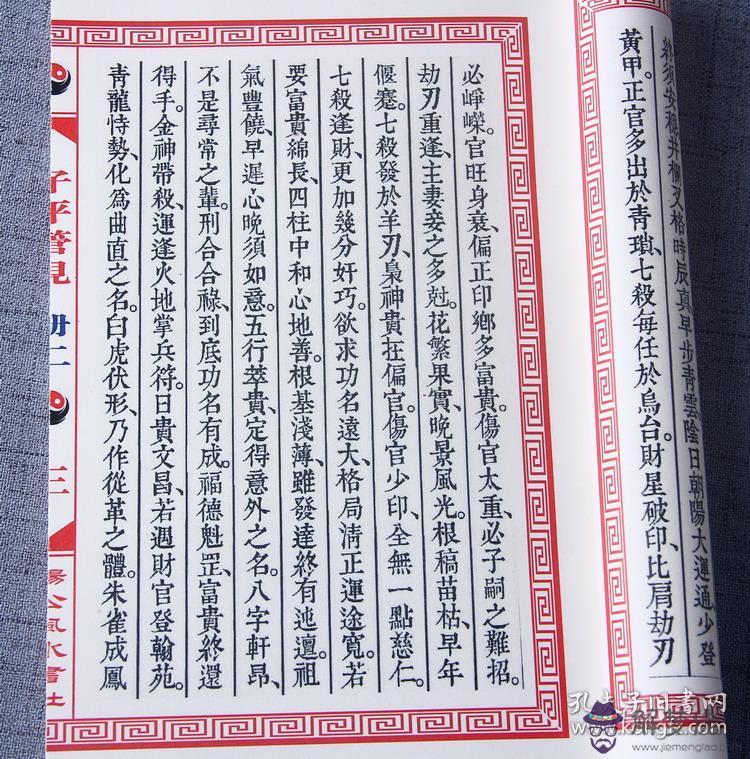 終須安穩井欄叉格時辰真早步青雲陰日朝陽大運通、少登
黃甲。正官多出於青瑣、七殺每任於烏台。財星破印、比肩劫刃
必崢嶸。官旺身衰、偏正印鄉多富貴。傷官太重、必子嗣之難招。
劫刃重逢、主妻妾之多尅。花繁果實、晚景風光。根稿苗枯、早年
偃蹇。七殺發於羊刃、梟神貴在偏官。傷官少印、全無一點慈仁。
七殺逢財、更加幾分奸巧。欲求功名遠大、格局清正運途寬。若
要富貴綿長、四柱中和心地善。根基淺薄、雖發達終有迍邅。祖
氣豐饒、早遲心晚須如意。五行萃貴、定得意外之名。八字軒昂、
不是尋常之輩。刑合合祿、到底功名有成。福德魁罡、富貴終還
得手。金神帶殺、運逢火地掌兵符。日貴文昌、若遇財官登翰苑。
青龍恃勢、化為曲直之名。白虎伏形、乃作從革之體。朱雀成鳳
子平管見 册二 三
楊公風水書社
孔夫子旧书网
www.kongfz.com
解梦
www.jiemenglao.com